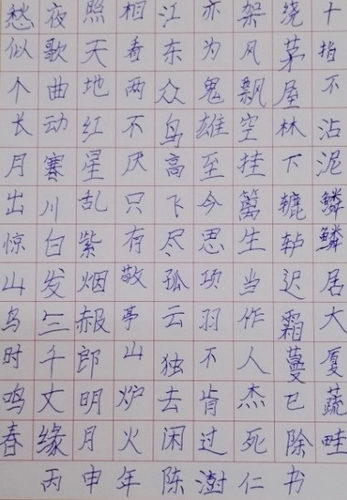 十指不沾泥鳞鳞居大厦蔬畦
绕茅屋林下辘轳迟霜蔓已除
架风飘空挂篱生当作人杰死
亦为鬼雄至今思项羽不肯过
江东众鸟高飞尽孤云独去闲
相看两不厌只有敬亭山炉火
照天地红星乱紫烟赧郎明月
夜歌曲动寒川白发三千丈缘
愁似个长月出惊山鸟时鸣春
丙申年陈澍仁书